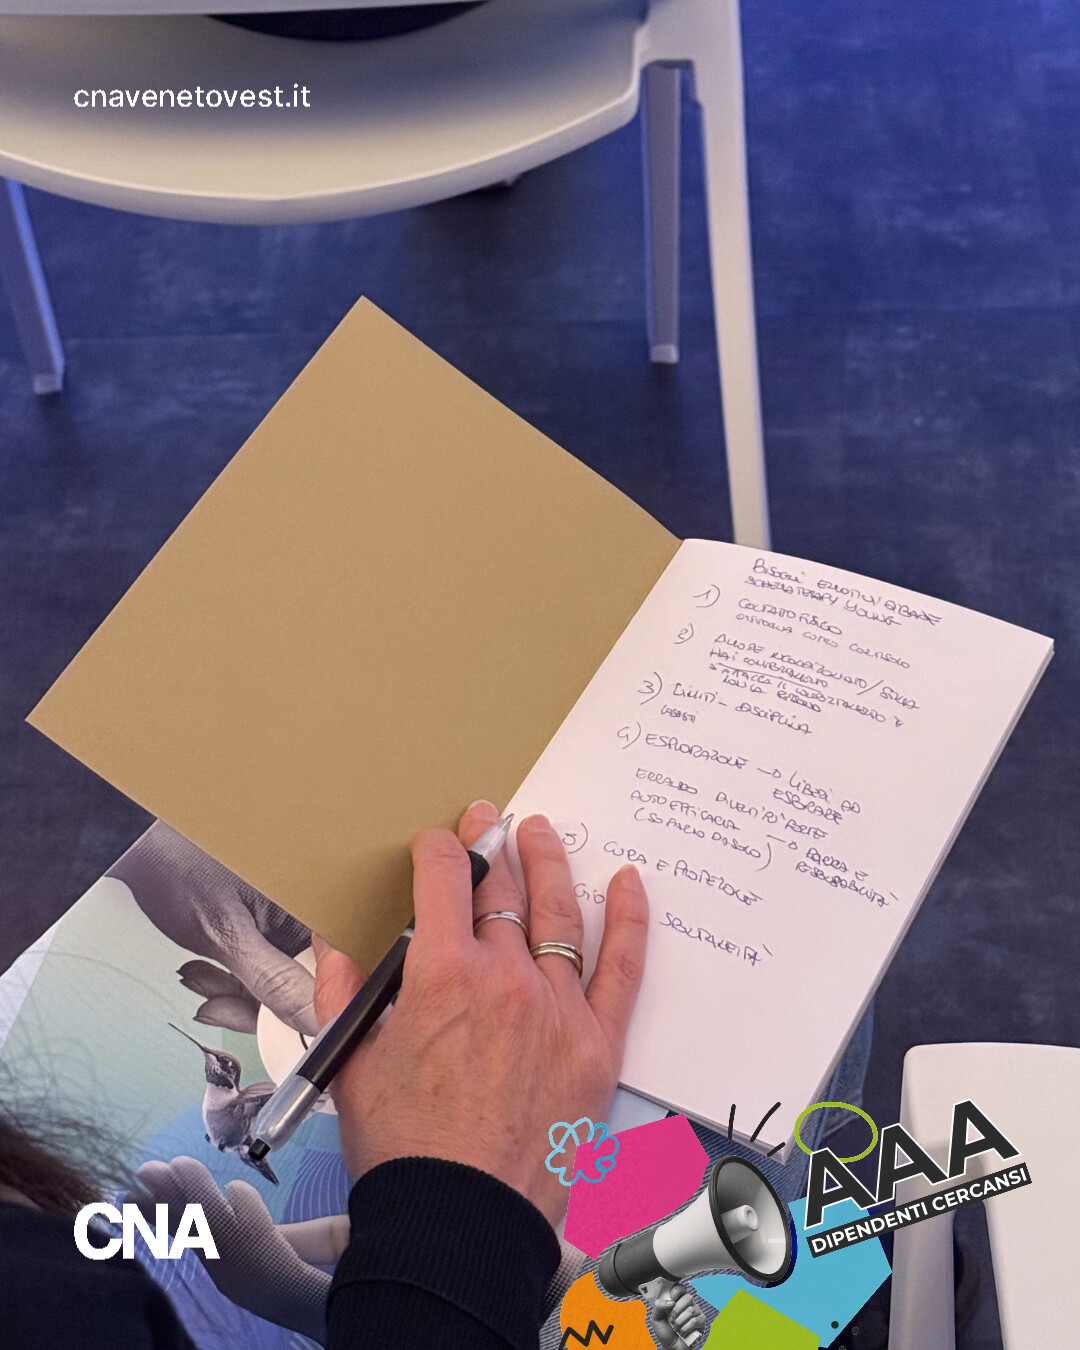 cnavenetovest.it
BISOGNI EMOTIVI DI BASE
SCHEMA THERAPY YOUNG
1) CONTATTO FISICO
OSSITOCINA CONTRO CORTISOLO
2) AMORE INCONDIZIONATO /
MAI
S'ATTACCA IL COMPORTAMENTO E
NON LA PERSONA
3) LIMITI - DISCIPLINA
4) ESPLORAZIONE → LIBERI AD
ESPLORARE
ERRANDO DIVENTI PIÙ FORTE
AUTOEFFICACIA →
(SO FARLO DA SOLO)
RESPONSABILITÀ
5) CURA E PROTEZIONE
GIO
SPONTANEITÀ
CNA
AAA
DIPENDENTI CERCANSI